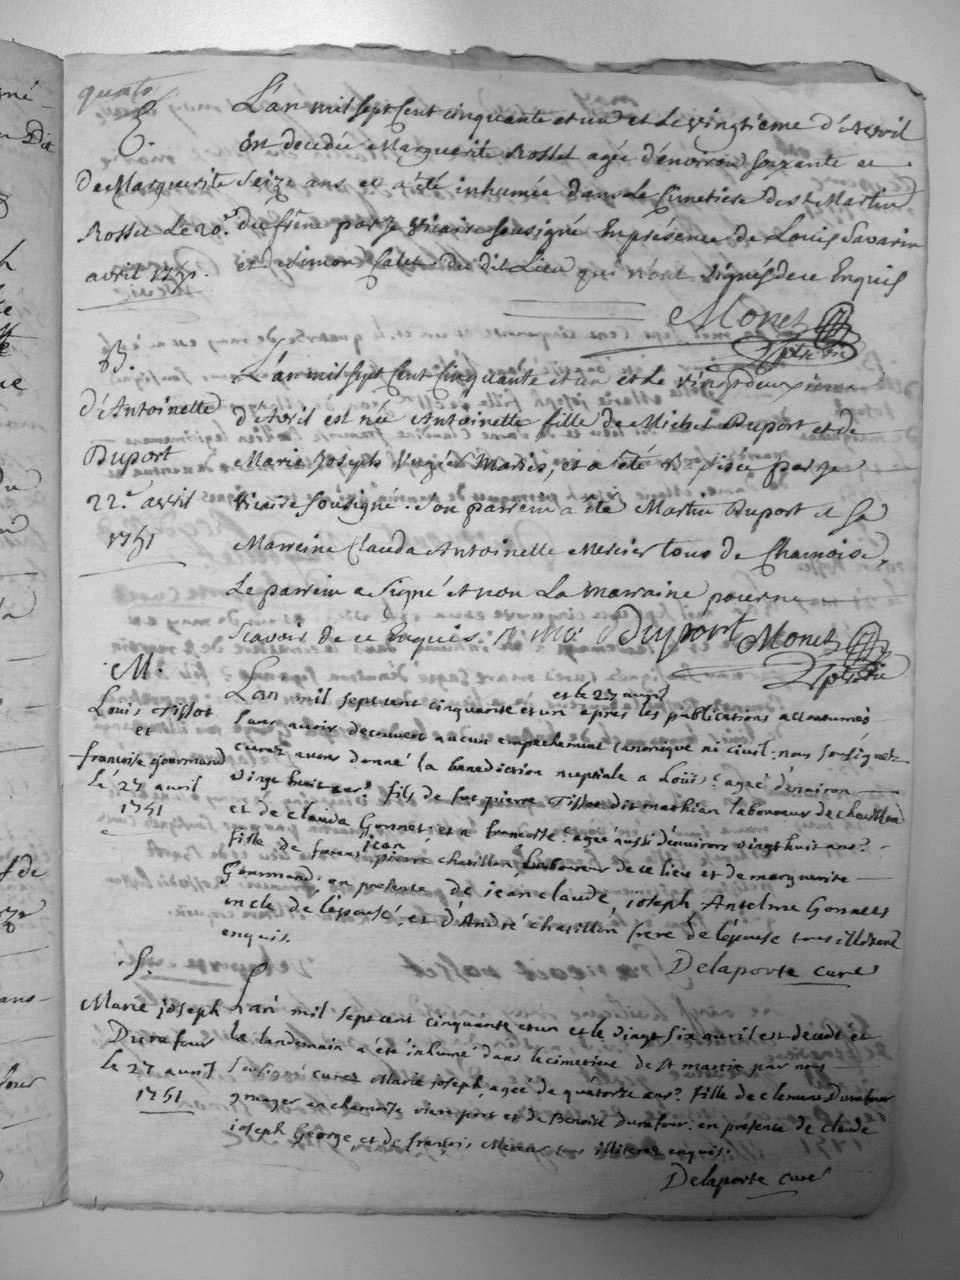 quarto
S.
De Marguerite
Rosset le 20.e
avril 1751.
L'an mil sept cent cinquante et un et le vingtieme d'Avril
est decedée Marguerite Rosset agée d'environ soixante et
seize ans et a été inhumée dans le Cimetiere de st Martin
du frêne par je vicaire sousigné En présence de Louis Savarin
et Simon Calet du dit Lieu qui n'ont signés de ce Enquis
Monet
ptre vic
B.
d'Antoinette
Duport
22.e avril
1751
L'an mil sept cent cinquante et un et le vingt deuxieme
d'Avril est née Antoinette fille de Michel Duport et de
Marie Joseph mariés, et a été Baptisée par je
vicaire sousigné. son parrein a été Martin Duport et sa
Marreine Clauda Antoinette Mercier tous de Chamoise,
Le parrein a signé et non La marraine pour ne
scavoir de ce Enquis. Duport Monet
ptre vic
M.
Louis Tissot
et
francoise gourmand
Le 27 avril
1751
Lan mil sept cent cinquante et un et le 27 avril apres les publications accoutumés
sans avoir decouvert aucun empechement canonique ni civil: nous sousignez
curez avons donné la benediction nuptiale a Loüis agé d'environ
vingt huit ans fils de fut pierre Tissot dit mathian laboureur de chatillon
et de clauda Gonnet: et a francoise agée aussi d'environ vingt huit ans
fille de jean pierre chatillon, Laboureur de ce lieu et de marguerite
Gourmand: en presence de jean claude, joseph Anselme Gonnets
oncle de l'épousé, et d'André chatillon frere de l'épouse tous illiterez
enquis.
Delaporte curé
S.
Marie joseph
Durafour
Le 27 avril
1751
L'an mil sept cent cinquante et un et le vingt six avril est decedé et
le landemain a été inhumé dans le cimetiere de st martin par nous
sousigné curez Marie joseph, agée de quatorze ans fille de clemens Durafour
granger en chamoise vieu port et de Benoite durafour: en presence de claude
joseph George, et de françois Mercier tous illiterez enquis.
Delaporte curé